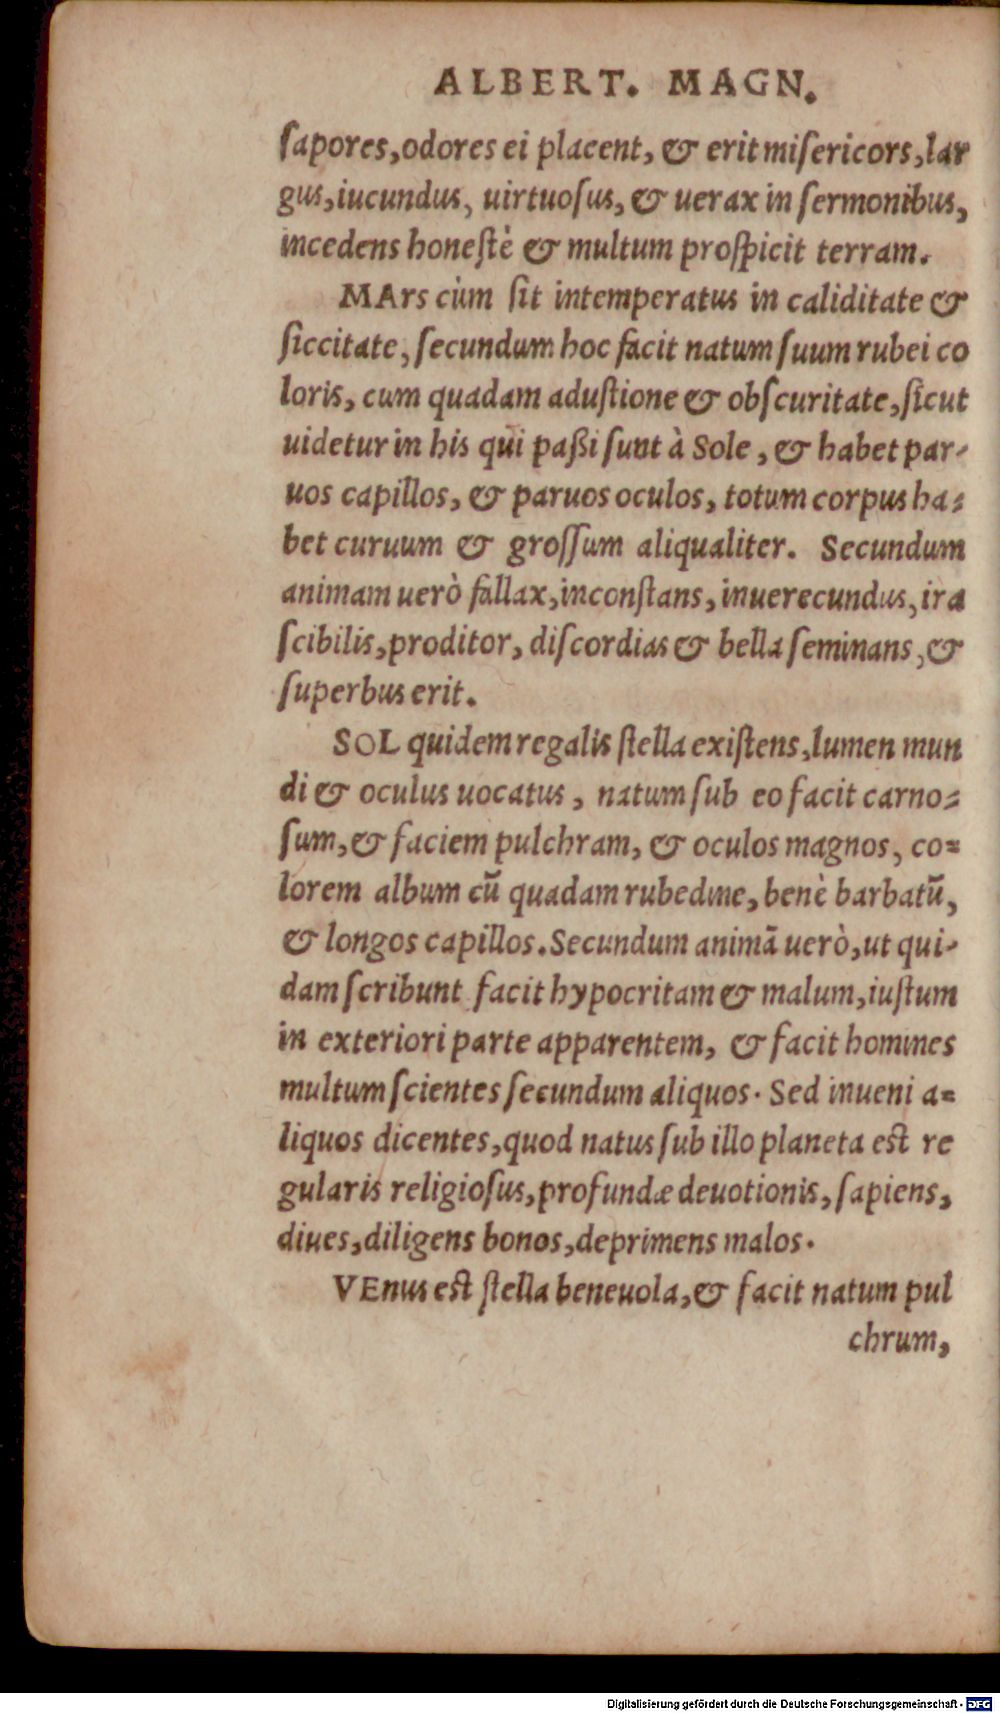 ALBERT. MAGN.
sapores, odores ei placent, & erit misericors, lar
gus, iucundus, uirtuosus, & uerax in sermonibus,
incedens honestè & multum prospicit terram.
MArs cùm sit intemperatus in caliditate &
siccitate, secundum hoc facit natum suum rubei co
loris, cum quadam adustione & obscuritate, sicut
uidetur in his qui paßi sunt à Sole, & habet par-
uos capillos, & paruos oculos, totum corpus ha-
bet curuum & grossum aliqualiter. Secundum
animam uerò fallax, inconstans, inuerecundus, ira
scibilis, proditor, discordias & bella seminans, &
superbus erit.
SOL quidem regalis stella existens, lumen mun
di & oculus uocatus, natum sub eo facit carno-
sum, & faciem pulchram, & oculos magnos, co-
lorem album cū quadam rubedine, benè barbatū,
& longos capillos. Secundum animā uerò, ut qui-
dam scribunt facit hypocritam & malum, iustum
in exteriori parte apparentem, & facit homines
multum scientes secundum aliquos. Sed inueni a-
liquos dicentes, quod natus sub illo planeta est re
gularis religiosus, profundæ deuotionis, sapiens,
diues, diligens bonos, deprimens malos.
VEnus est stella beneuola, & facit natum pul
chrum,
Digitalisierung gefördert durch die Deutsche Forschungsgemeinschaft - DFG